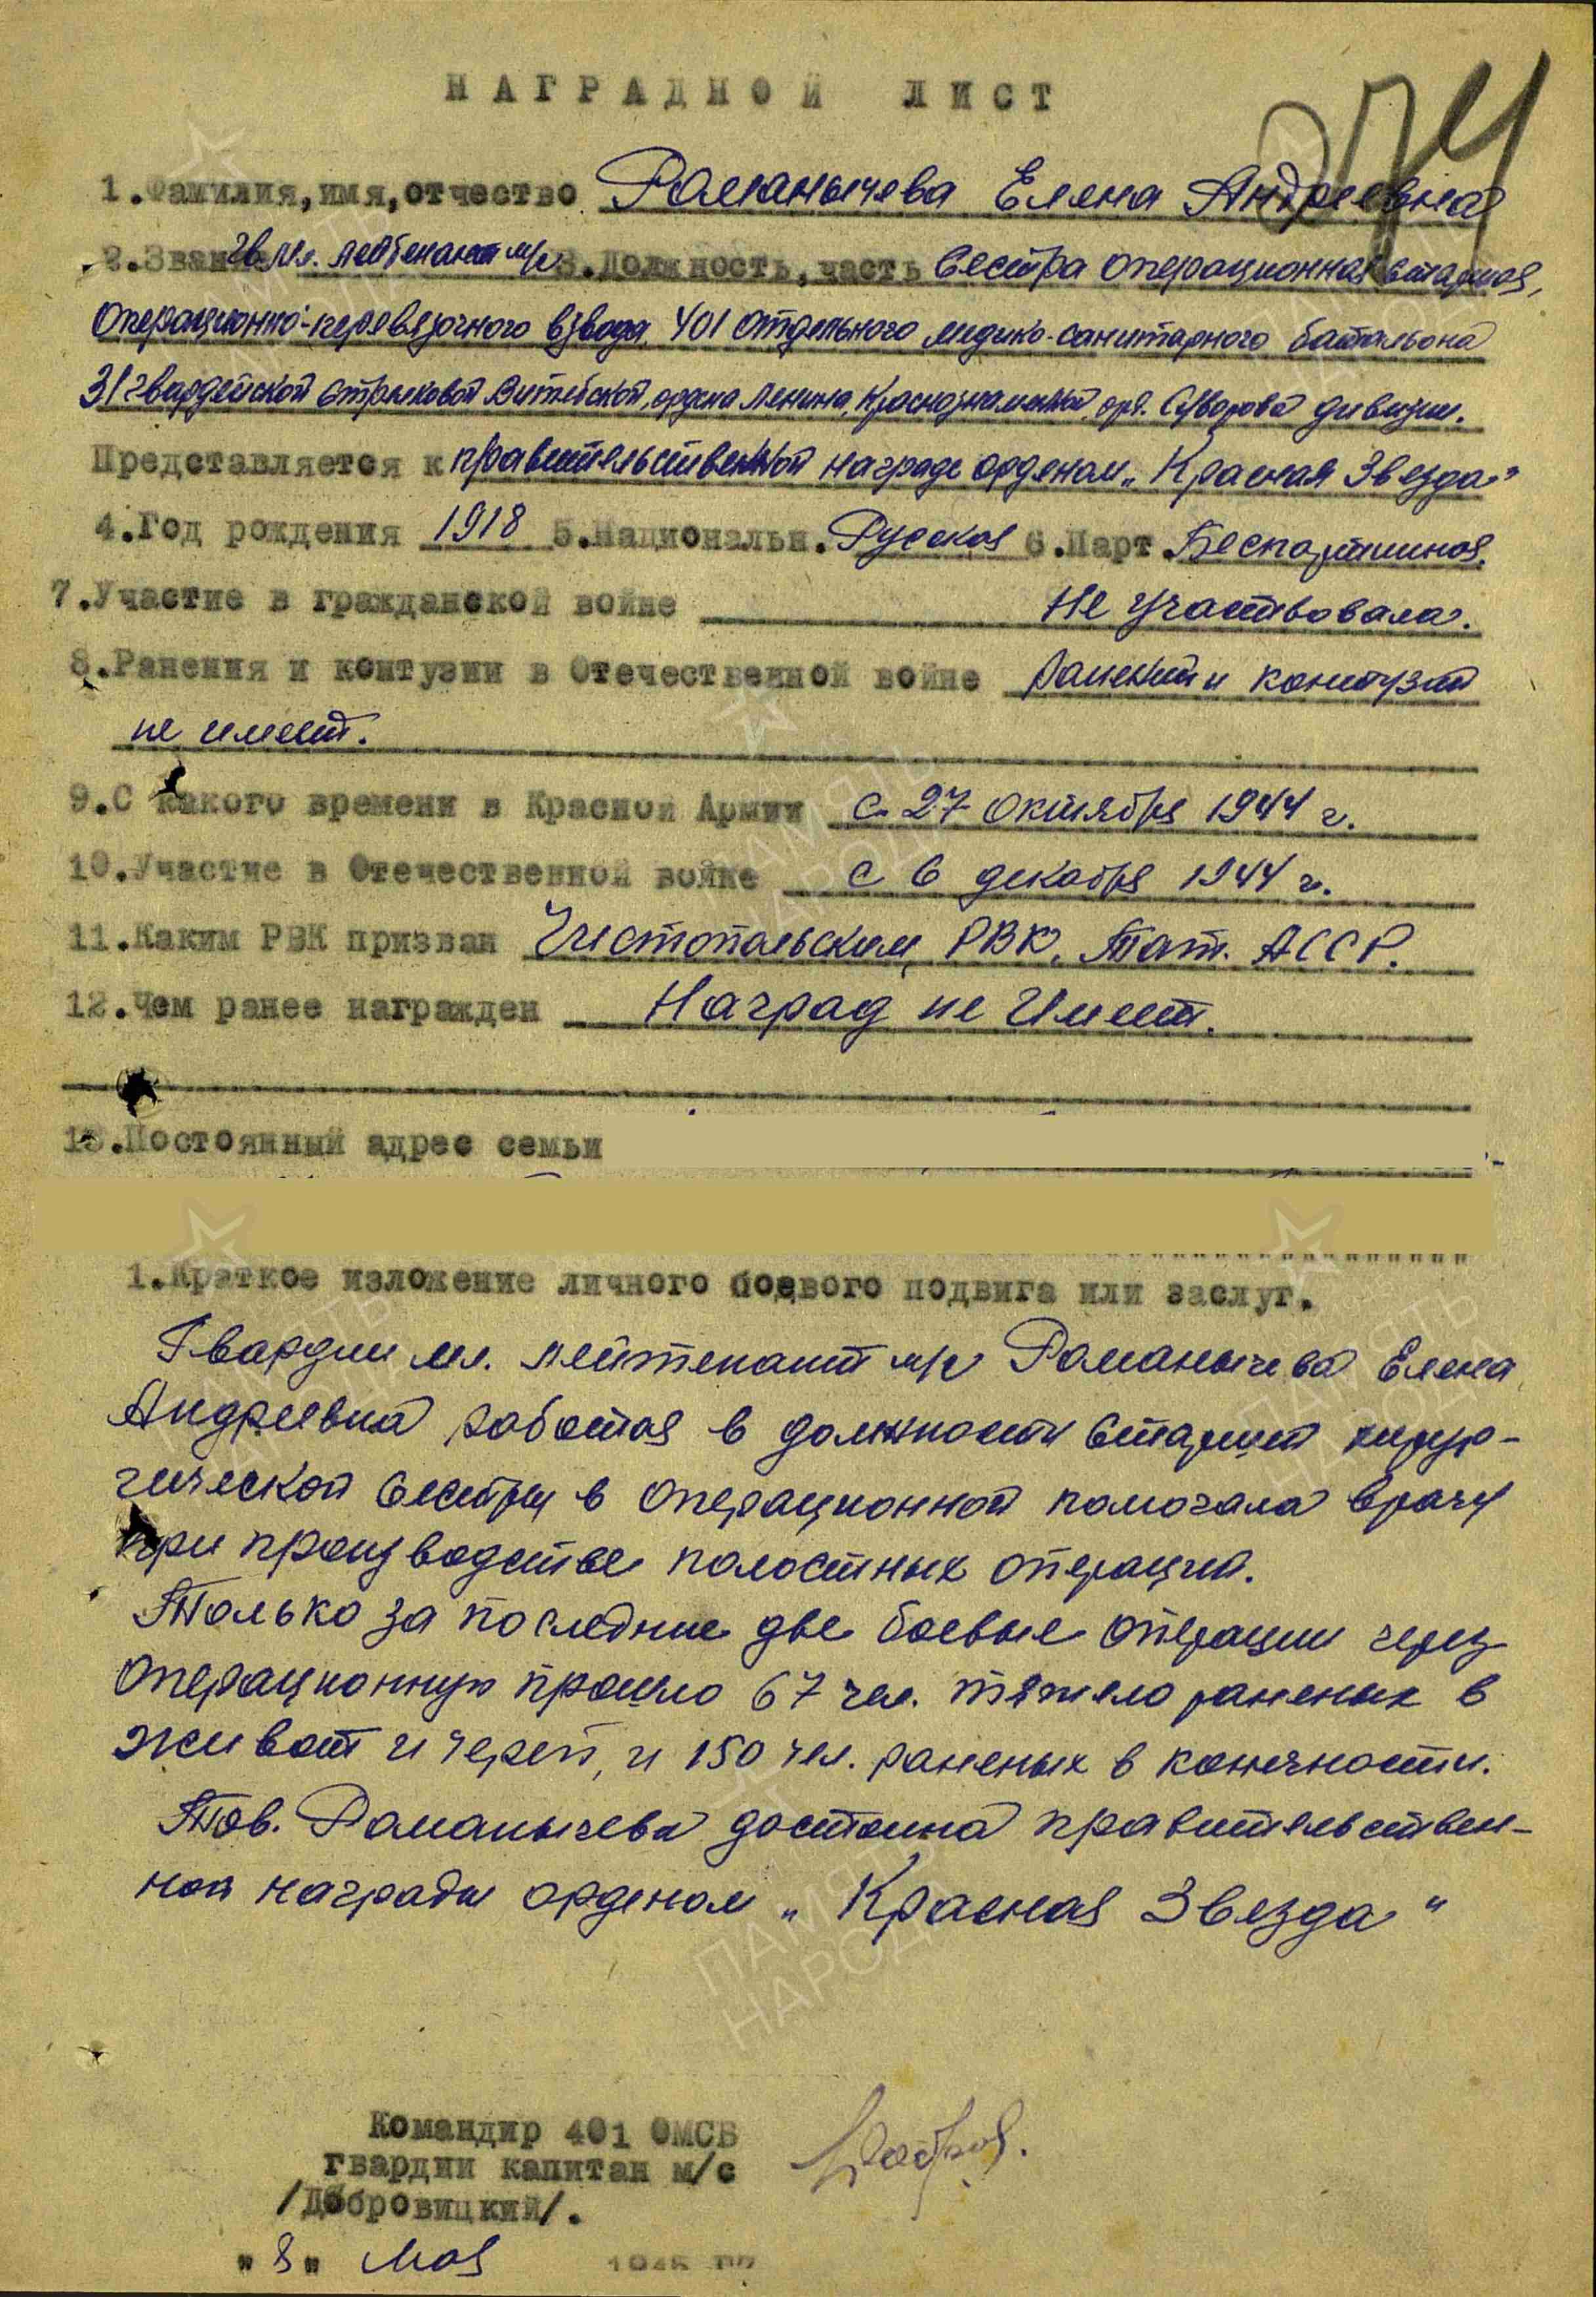 НАГРАДНОЙ ЛИСТ
274
1.Фамилия,имя,отчество Романычева Елена Андреевна
2.Звание Гв мл. лейтенант м/с 3.Должность,часть Сестра операционная старшая,
Операционно-перевязочного взвода, 401 отдельного медико-санитарного батальона
31 гвардейской стрелковой Витебской, ордена Ленина, Краснознаменной, орд. Суворова дивизии.
Представляется к правительственной награде орденом „Красная Звезда"
4.Год рождения 1918 5.Национальн. Русская 6.Парт Беспартийная.
7.Участие в гражданской войне Не участвовала.
8.Ранения и контузии в Отечественной войне ранений и контузий
не имеет.
9.С какого времени в Красной Армии с 27 октября 1944 г.
10.Участие в Отечественной войне с 6 декабря 1944 г.
11.Каким РВК призван Чистопольским, РВК. Тат. АССР.
12.Чем ранее награжден Наград не имеет.
13.Постоянный адрес семьи
1.Краткое изложение личного боевого подвига или заслуг.
Гвардии мл. лейтенант м/с Романычева Елена
Андреевна работая в должности старшей хирур-
гической сестры в операционной помогала врачу
при производстве полостных операций.
Только за последние две боевые операции через
операционную прошло 67 чел. тяжело раненых в
живот и череп, и 150 чел. раненых в конечности.
Тов. Романычева достойна правительствен-
ной награды орденом „Красная Звезда"
Командир 401 ОМСБ
гвардии капитан м/с
/Добровицкий/.
"8" мая 1945 г.
ПАМЯТЬ НАРОДА